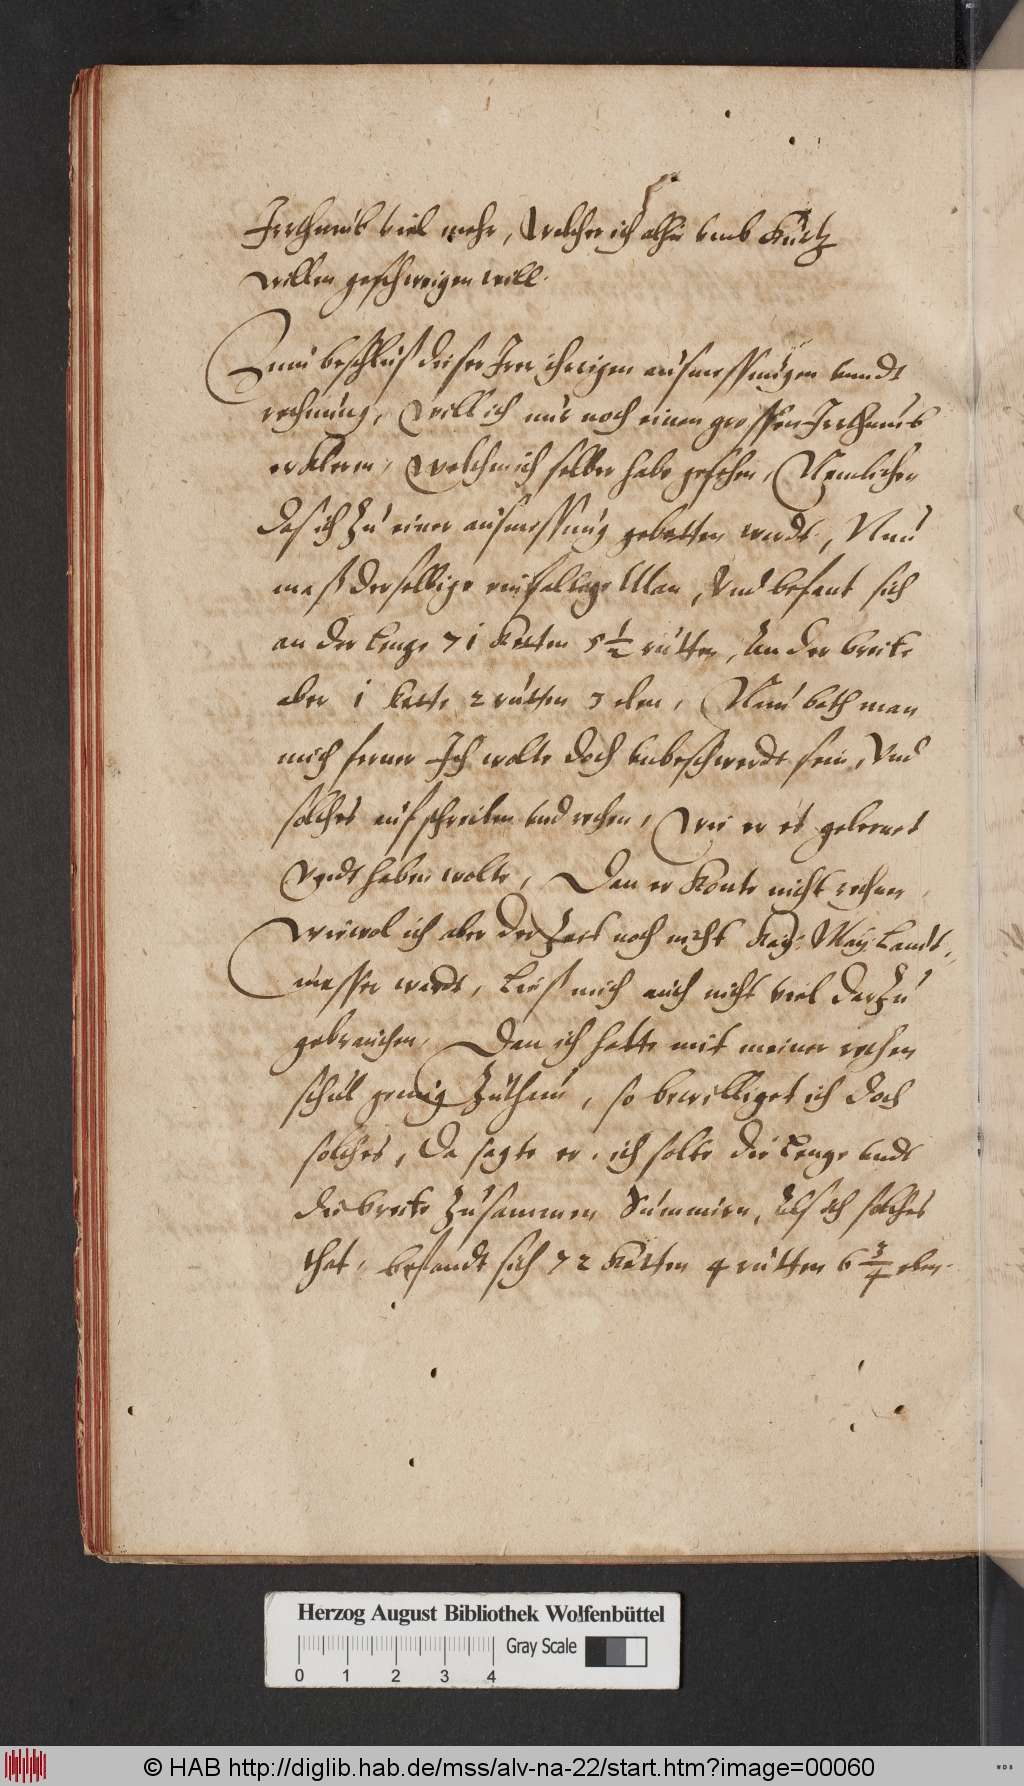 Irrthumb viel mehr, Welcher ich alhie umb Kurtz
willen geschweigen will.
Zum beschluß dieser Irer ihrrigen ausmessungen unndt
rechnung, will ich nur noch einen grossen Irrthumb
erkleren, welchen ich selber habe gesehen, Nemlichen
das ich zu einer ausmessung gebetten wardt, Nun
maß derselbige einfaltige Man, Und befant sich
an der Lenge 71 Ketten 5 1/2 rutten, An der breite
aber 1 Kette 2 rutten 3 elen, Nun bath man
mich ferner Ich wolte doch unbeschwerdt sein, Und
solches aufschreiben und rechen, Wie er es gelernet
Undt haben wolte, Dan er Konte nicht rechnen,
Wiewol ich aber der Zeit noch nicht Kay: May: Landt-
messer wardt, Ließ mich auch nicht viel darzu
gebrauchen, Dan ich hatte mit meiner rechen
schul genug Zuthun, so bewilliget ich doch
solches, Da sagte er, ich solte die Lenge undt
die breite Zusammen Summirn, Als ich solches
that, befandt sich 72 Ketten 4 rutten 6 3/4 elen.
Herzog August Bibliothek Wolfenbüttel
Gray Scale
0 1 2 3 4
© HAB http://diglib.hab.de/mss/alv-na-22/start.htm?image=00060